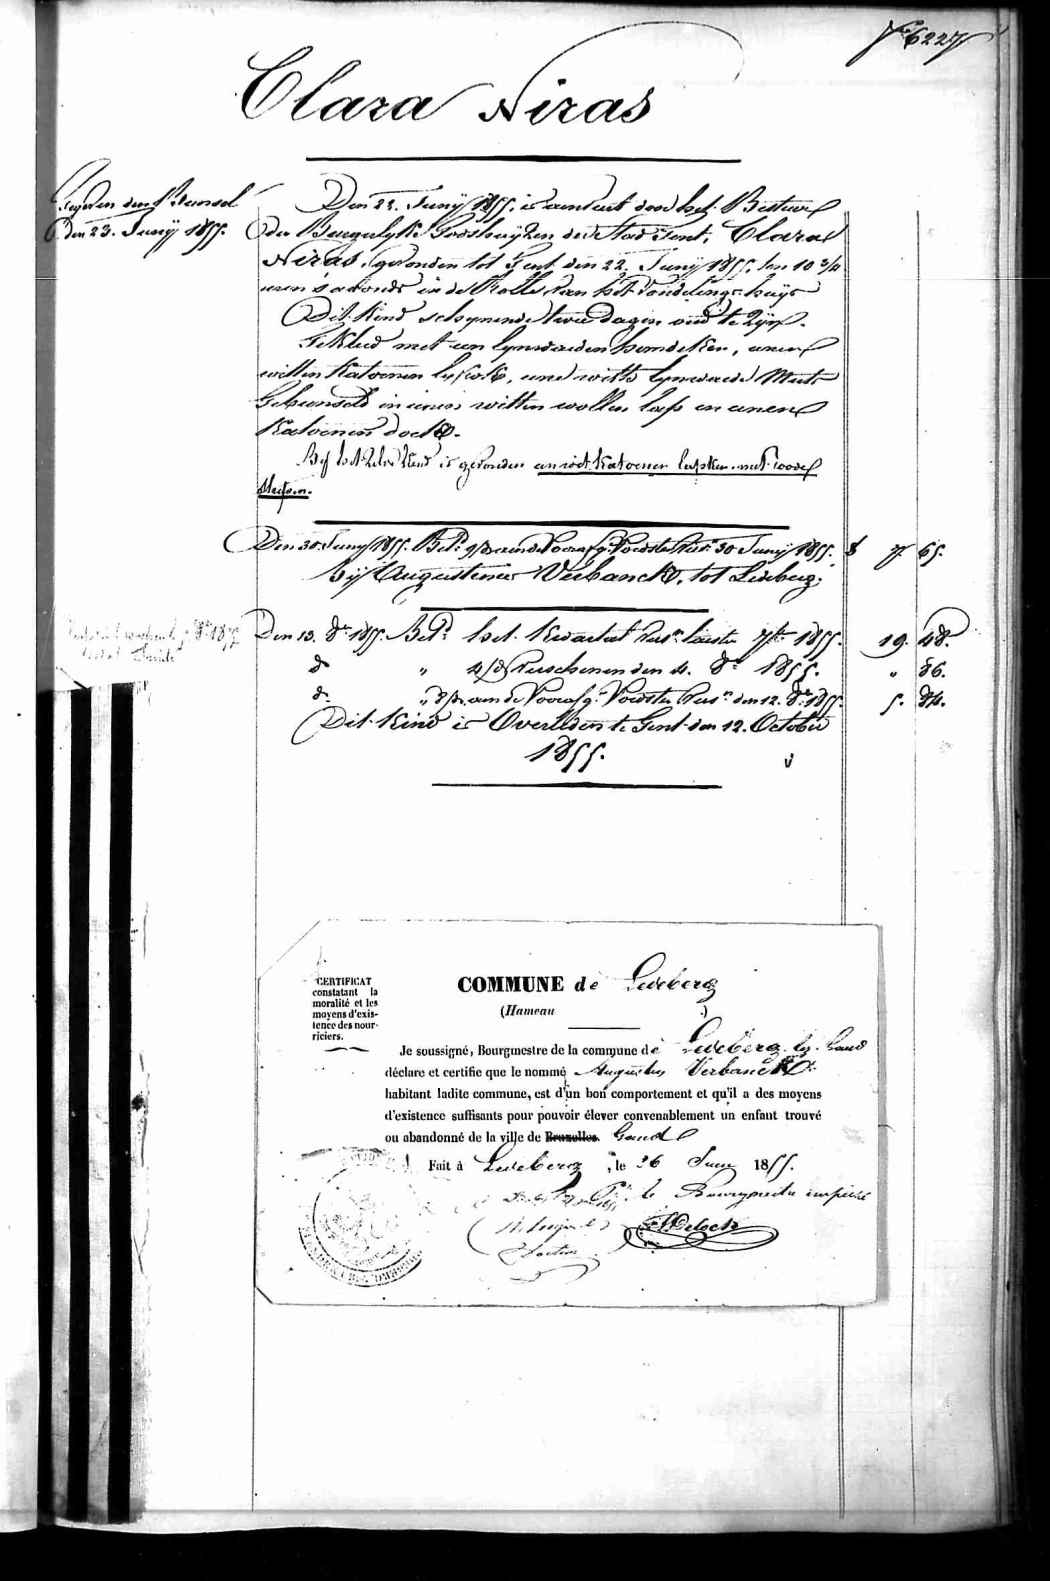 6227
Clara Niras
den 23. Junij 1855.
Den 22. Junij 1855. is aenveert door het Bestuur
der Burgerlyke Godshuyzen der Stad Gent, Clara
Niras, gevonden tot Gent den 22. Junij 1855. ten 10 3/4
uren s'avonds in de Rolle van het Vondelings-huys
Dit kind schynende twee dagen oud te zyn.
Gekleed met een lynwaeden hemdeken, eenen
witten katoenen lyfrok, eene witte lynwaede Muts
Gebunseld in eenen witten wollen lap en eenen
katoenen doek.
By het zelve kind is gevonden een wit katoenen lapken met roode
Den 30 Junij 1855. Bet. Voedster 30 Junij 1855. 7. 65.
bij Augustenus Verbanck, tot Ledeberg.
Den 13. 8re 1855. Bet. het kwartael 7bre 1855. 19. 48.
do " verschenen den 4. 8re 1855. " 86.
do " Voedster den 12. 8re 1855. 5. 84.
Dit kind is Overleden te Gent den 12. October
1855.
CERTIFICAT
constatant la
moralité et les
moyens d'exis-
tence des nour-
riciers.
COMMUNE de Ledeberg
(Hameau )
Je soussigné, Bourgmestre de la commune de Ledeberg lez Gand
déclare et certifie que le nommé Augustin Verbanck
habitant ladite commune, est d'un bon comportement et qu'il a des moyens
d'existence suffisants pour pouvoir élever convenablement un enfant trouvé
ou abandonné de la ville de Bruxelles. Gand
Fait à Ledeberg, le 26 Juin 1855.
le Bourgmestre